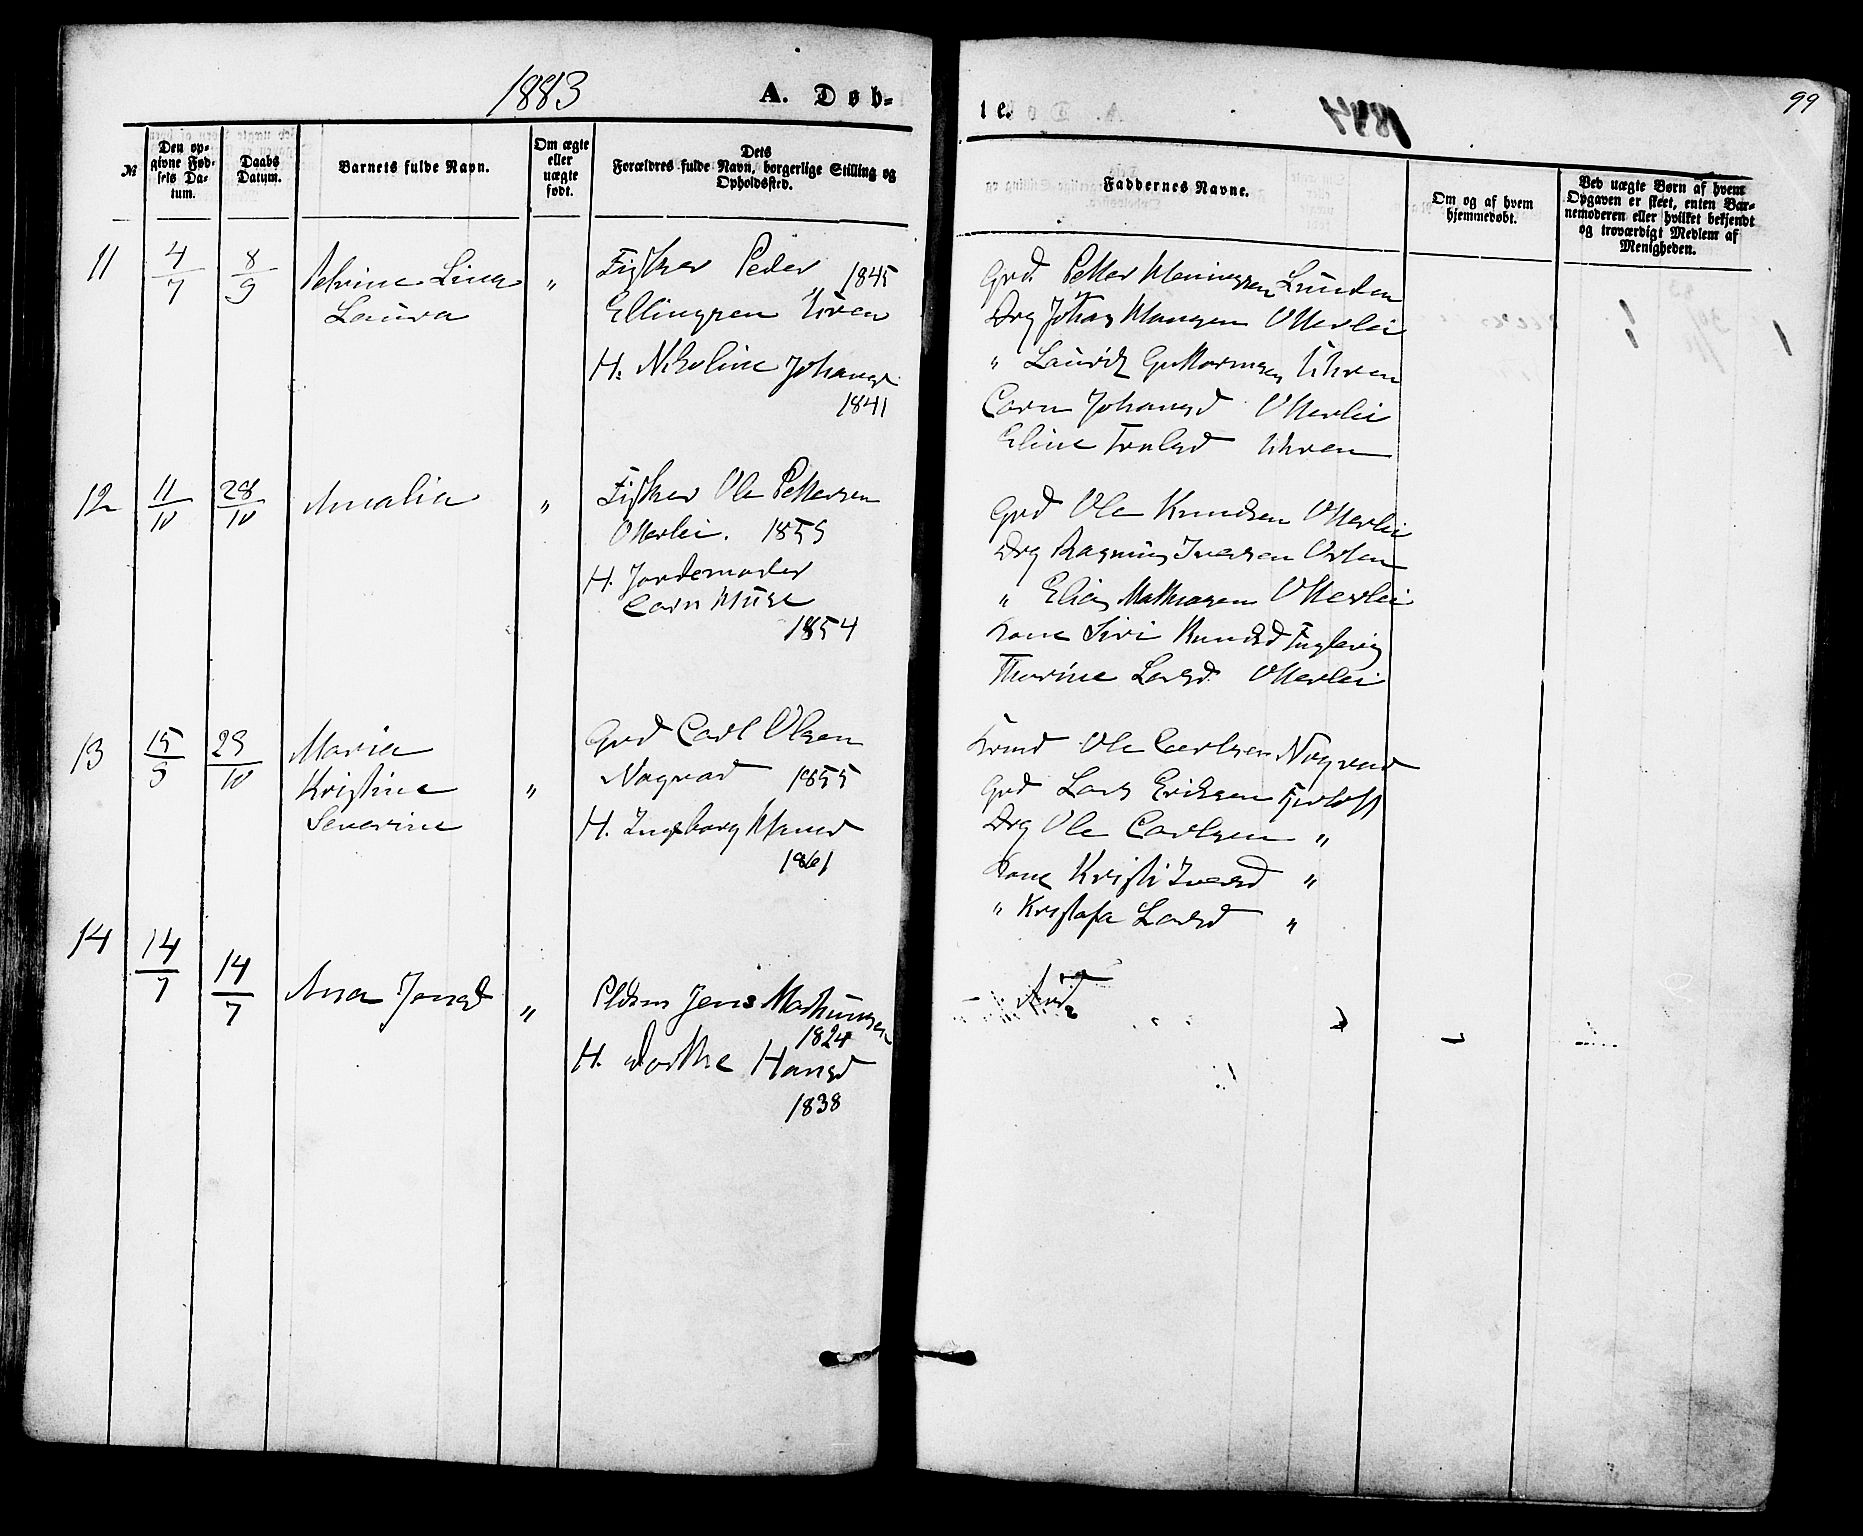 1883
A. Døb-
te.
99
№
Den op-
givne Fød-
sels Da-
tum.
Daabs
Datum.
Barnets fulde Navn.
Om ægte
eller
uægte
født.
Dets
Forældres fulde Navn, borgerlige Stilling og
Opholdssted.
Faddernes Navne.
Om og af hvem
hjemmedøbt.
Ved uægte Børn af hvem
Opgaven er skeet, enten Bar-
nemoderen eller hvilket bekjendt
og troværdigt Medlem af
Menigheden.
11
4/7
8/9
Petrine Lina
Laura
"
Fisker Peder 1845
Ellingsen Uren
H. Nikoline Johansd
1841
Grd Petter Lunden
Drg Johan Hansen Otterlei
" Laurits Guttormsen Uhren
Carn Johansd Otterlei
Eline Uhren
12
11/10
28/10
Amalia
"
Fisker Ole Pettersen
Otterlei. 1859
H. Jordemoder
Carn
1854
Grd Ole Knudsen Otterlei
Drg Rasmus Iversen
" Elias Mathiasen Otterlei
Kone Siri Knudsd Fuglevig
Thorine Larsd Otterlei
13
15/9
29/10
Maria
Kristine
Severine
"
Grd Carl Olsen
Nogvad 1855
H. Ingeborg
1861
Ole Carlsen Nogvad
Grd Lars Eriksen
Drg Ole Carlsen "
Kone Kristi Iversd "
" Kristofa Larsd "
14
14/7
14/7
Ana Jensd
"
Jens Mathiassen
1824
H. Dorthe Hansd
1838